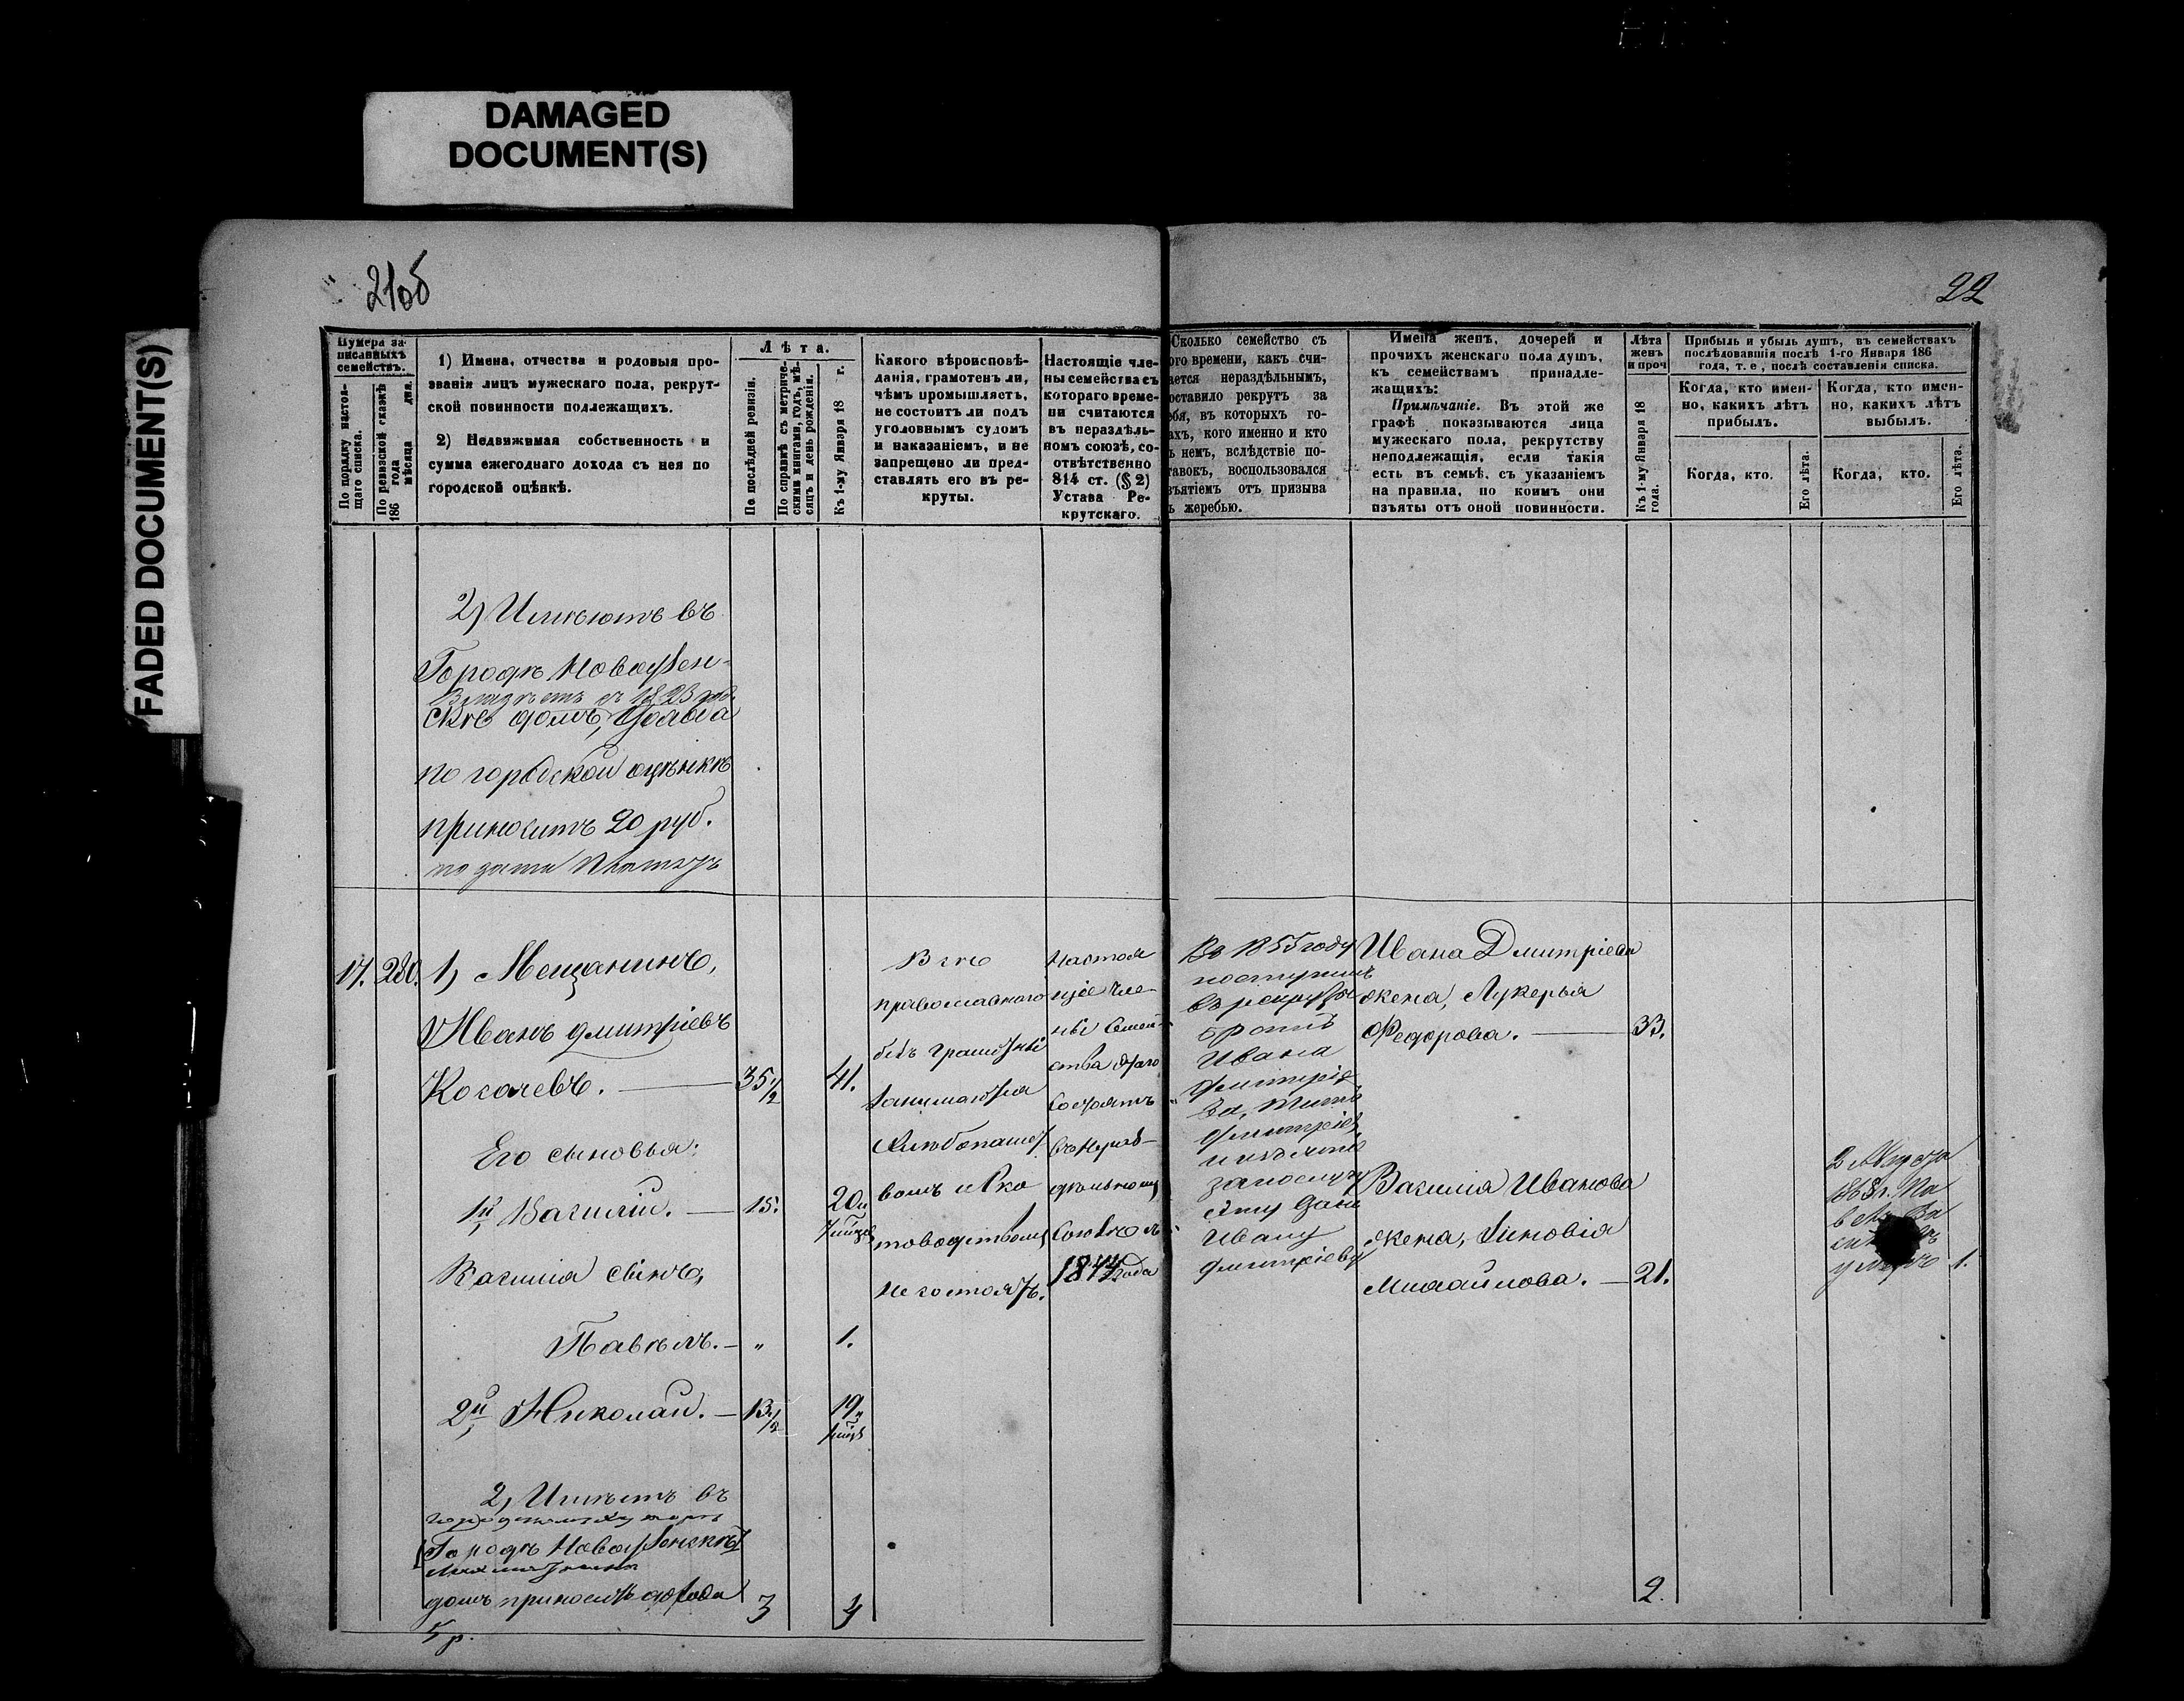 DAMAGED
DOCUMENT(S)
FADED DOCUMENT(S)
21об
22
Нумера за-
писанныхъ
семействъ.
По порядку настоя-
щаго списка.
По ревизской сказкѣ
186 года
мѣсяца дня.
1) Имена, отчества и родовыя про-
званія лицъ мужескаго пола, рекрут-
ской повинности подлежащихъ.
2) Недвижимая собственность и
сумма ежегоднаго дохода съ нея по
городской оцѣнкѣ.
Лѣта.
По послѣдней ревизіи.
По справкѣ съ метриче-
скими книгами, годъ, мѣ-
сяцъ и день рожденія.
Къ 1-му Января 18 г.
Какого вѣроисповѣ-
данія, грамотенъ ли,
чѣмъ промышляетъ,
не состоитъ ли подъ
уголовнымъ судомъ
и наказаніемъ, и не
запрещено ли пред-
ставлять его въ ре-
круты.
Настоящіе чле-
ны семейства съ
котораго време-
ни считаются
въ нераздѣль-
номъ союзѣ, со-
отвѣтственно
814 ст. (§ 2)
Устава Ре-
крутскаго.
Сколько семейство съ
ого времени, какъ счи-
ается нераздѣльнымъ,
оставило рекрутъ за
ебя, въ которыхъ го-
ахъ, кого именно и кто
ъ немъ, вслѣдствіе по-
тавокъ, воспользовался
зъятіемъ отъ призыва
ъ жеребью.
Имена женъ, дочерей и
прочихъ женскаго пола душъ,
къ семействамъ принадле-
жащихъ:
Примѣчаніе. Въ этой же
графѣ показываются лица
мужескаго пола, рекрутству
неподлежащія, если такія
есть въ семьѣ, съ указаніемъ
на правила, по коимъ они
изъяты отъ оной повинности.
Лѣта
женъ
и проч
Къ 1-му Января 18
года.
Прибыль и убыль душъ, въ семействахъ
послѣдовавшія послѣ 1-го Января 186
года, т. е, послѣ составленія списка.
Когда, кто имен-
но, какихъ лѣтъ
прибылъ.
Когда, кто.
Его лѣта.
Когда, кто имен-
но, какихъ лѣтъ
выбылъ.
Когда, кто.
Его лѣта.
2) Имѣютъ въ
Городѣ Новоузен-
Владѣетъ съ 1823 год.
скѣ домъ,
по городской оцѣнкѣ
приноситъ 20 руб.
17. 280. 1) Мещанинъ,
Иванъ Дмитріевъ
Косачевъ. 35½ 41.
Его сыновья:
1й Василій. 15. 20и
Василія сынъ,
Павелъ. „ 1.
2й Николай. 13½ 19„
2) Имѣетъ въ
Городѣ Новоузенскѣ
домъ приноситъ дохода
5 р.
3 4
Всѣ
православнаго
безъ грамотны
занимаются
Хлѣбопашест
вомъ и Ско
товодствомъ
не состоятъ.
Настоя
щіе чле-
ны Семей-
ства этаго
Состоятъ
въ Нераз-
дѣльномъ
Союзѣ съ
1844 года
Въ 1855 году
поступилъ
въ рекруты
братъ
Ивана
Дмитріе
ва, Титъ
Дмитріевъ
Ивану
Дмитріеву
Ивана Дмитріева
жена, Лукерья
Федорова. 33.
Василія Иванова
жена, Зиновія
Михайлова. 21.
2.
1.